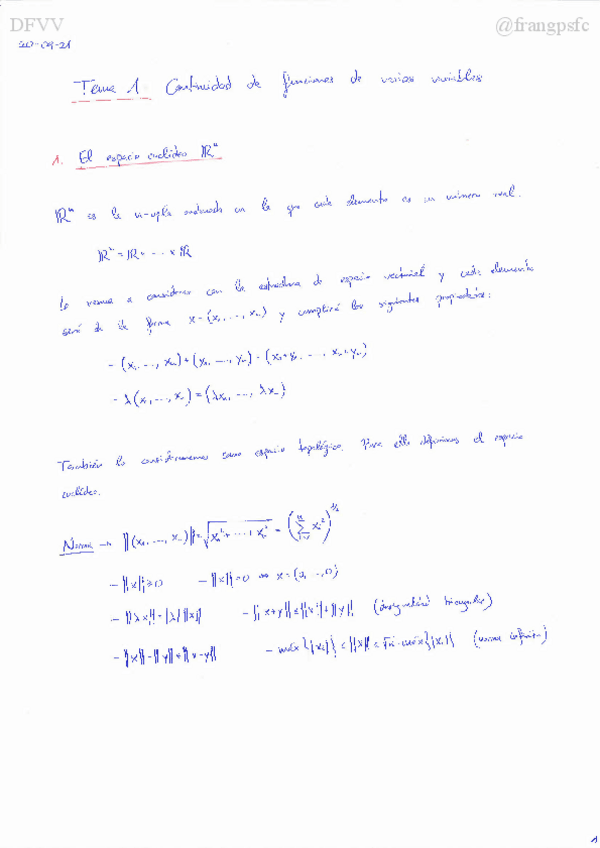 DFVV
@frangpsfc
Tema 1 Continuidad de funciones de varias variables
1. El espacio euclídeo ℝⁿ
ℝⁿ es la n-upla ordenada en la que cada elemento es un número real.
ℝⁿ = ℝ × ··· × ℝ
Lo vamos a considerar con la estructura de espacio vectorial y cada elemento
será de la forma x = (x₁, ..., xₙ) y cumplirá las siguientes propiedades:
- (x₁, ..., xₙ) + (y₁, ..., yₙ) = (x₁+y₁, ..., xₙ+yₙ)
- λ(x₁, ..., xₙ) = (λx₁, ..., λxₙ)
También lo consideraremos como espacio topológico. Para ello definimos el espacio
euclídeo.
Norma → ||(x₁, ..., xₙ)|| = √(x₁² + ··· + xₙ²) = (∑ᵢ₌₁ⁿ xᵢ²)^(1/2)
- ||x|| ≥ 0 - ||x|| = 0 ⇔ x = (0, ..., 0)
- ||λx|| = |λ| ||x|| - ||x+y|| ≤ ||x|| + ||y|| (desigualdad triangular)
- ||x|| - ||y|| ≤ ||x-y|| - máx{|xᵢ|} ≤ ||x|| ≤ √n · máx{|xᵢ|} (norma infinito)
1